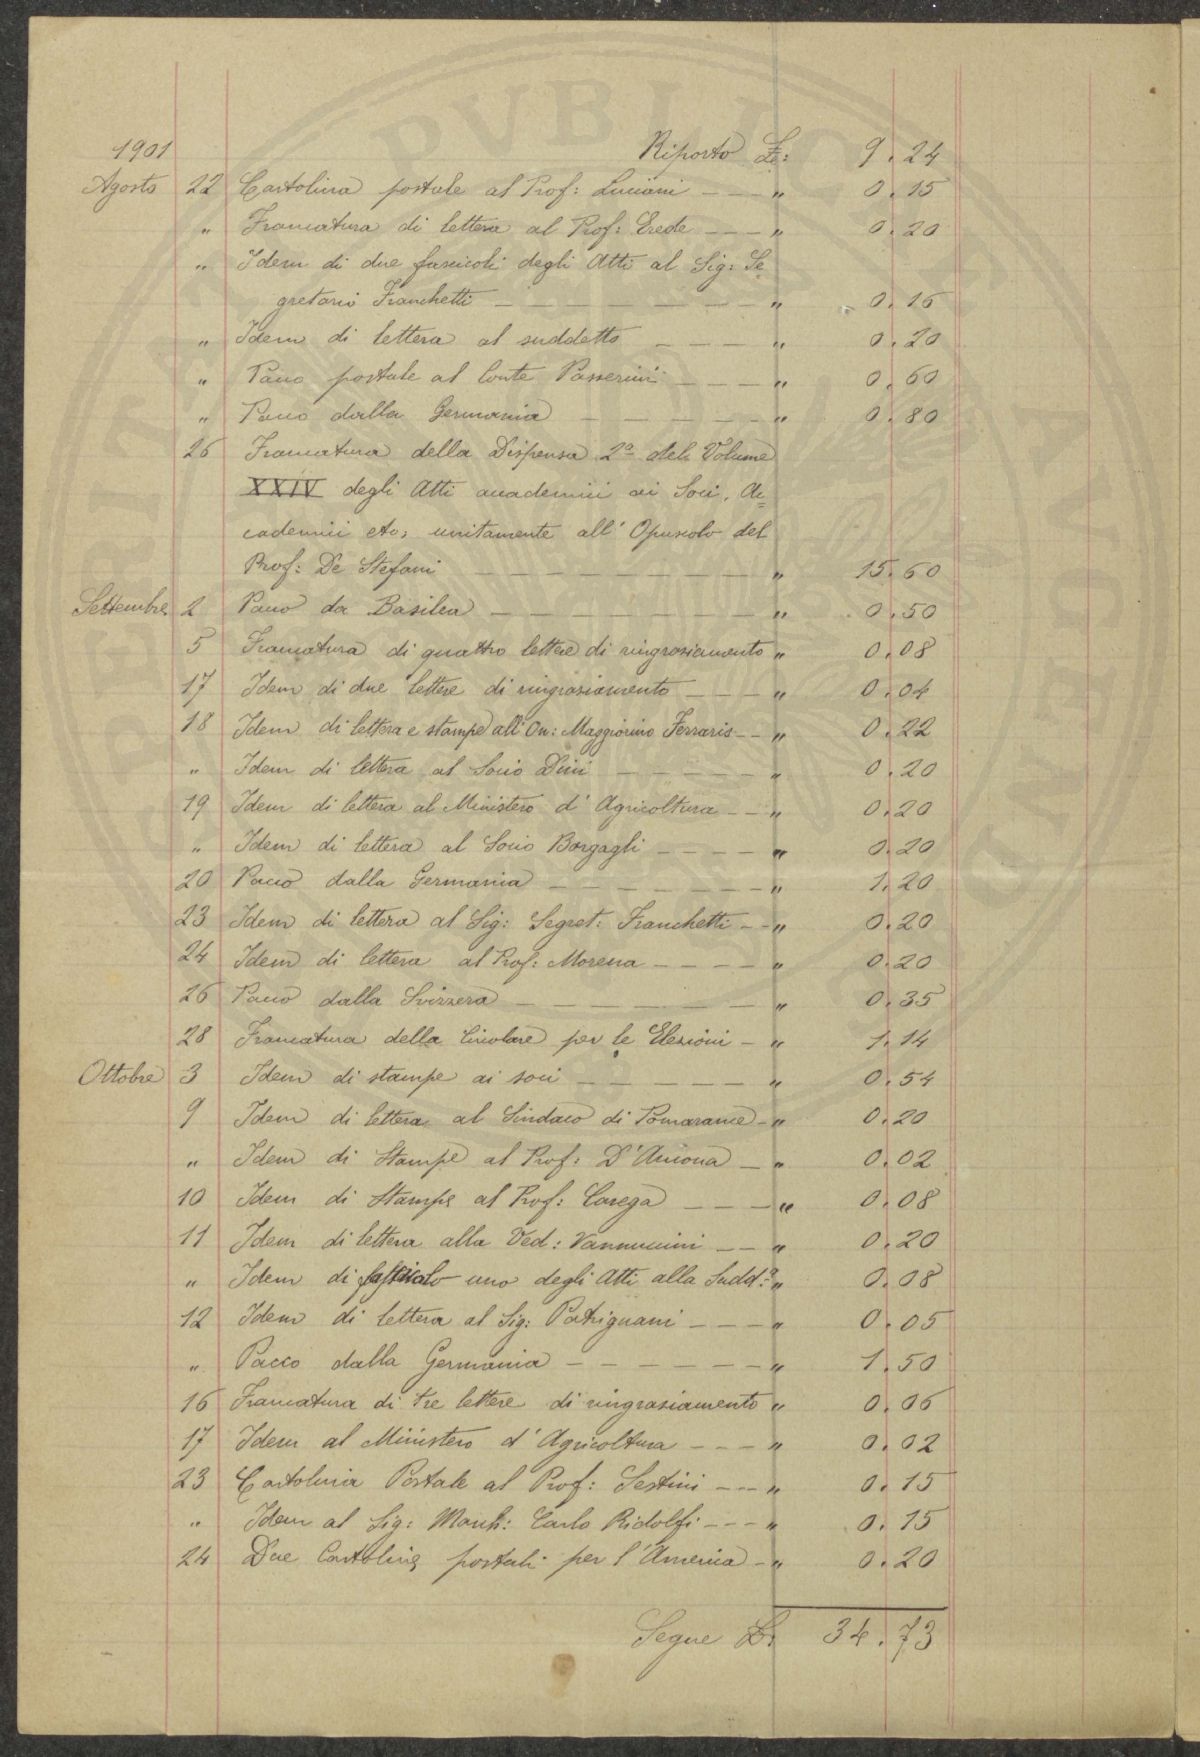 1901 Riporto £: 9.24
Agosto 22 Cartolina postale al Prof: Luciani — — " 0.15
" Francatura di lettera al Prof: Erede — — — " 0.20
" Idem di due fascicoli degli Atti al Sig: Se-
gretario Franchetti — — — — — — — " 0.16
" Idem di lettera al suddetto — — — " 0.20
" Pacco postale al Conte Passerini — — — " 0.60
" Pacco dalla Germania — — — — — " 0.80
26 Francatura della Dispensa 2ª del Volume
XXIV degli Atti accademici ai Soci, Ac=
cademici etc, unitamente all'Opuscolo del
Prof: De Stefani — — — — — — — " 15.60
Settembre 2 Pacco da Basilea — — — — — — — " 0.50
5 Francatura di quattro lettere di ringraziamento " 0.08
17 Idem di due lettere di ringraziamento — — — " 0.04
18 Idem di lettera e stampe all'On: Maggiorino Ferraris — — " 0.22
" Idem di lettera al Socio Dini — — — — — " 0.20
19 Idem di lettera al Ministero d'Agricoltura — — " 0.20
" Idem di lettera al Socio Bargagli — — — — " 0.20
20 Pacco dalla Germania — — — — — — — " 1.20
23 Idem di lettera al Sig: Segret: Franchetti — — " 0.20
24 Idem di lettera al Prof: Morena — — — — " 0.20
26 Pacco dalla Svizzera — — — — — — — " 0.35
28 Francatura della Circolare per le Elezioni — " 1.14
Ottobre 3 Idem di stampe ai soci — — — — — " 0.54
9 Idem di lettera al Sindaco di Pomarance — " 0.20
" Idem di Stampe al Prof: D'Ancona — " 0.02
10 Idem di Stampe al Prof: Carega — — — " 0.08
11 Idem di lettera alla Ved: Vannuccini — — " 0.20
" Idem di fascicolo uno degli Atti alla Sudd.ª " 0.08
12 Idem di lettera al Sig: Patrignani — — — " 0.05
" Pacco dalla Germania — — — — — — " 1.50
16 Francatura di tre lettere di ringraziamento " 0.06
17 Idem al Ministero d'Agricoltura — — — " 0.02
23 Cartolina Postale al Prof: Sestini — — — " 0.15
" Idem al Sig: March: Carlo Ridolfi — — — " 0.15
24 Due Cartoline postali per l'America — " 0.20
Segue £: 34.73